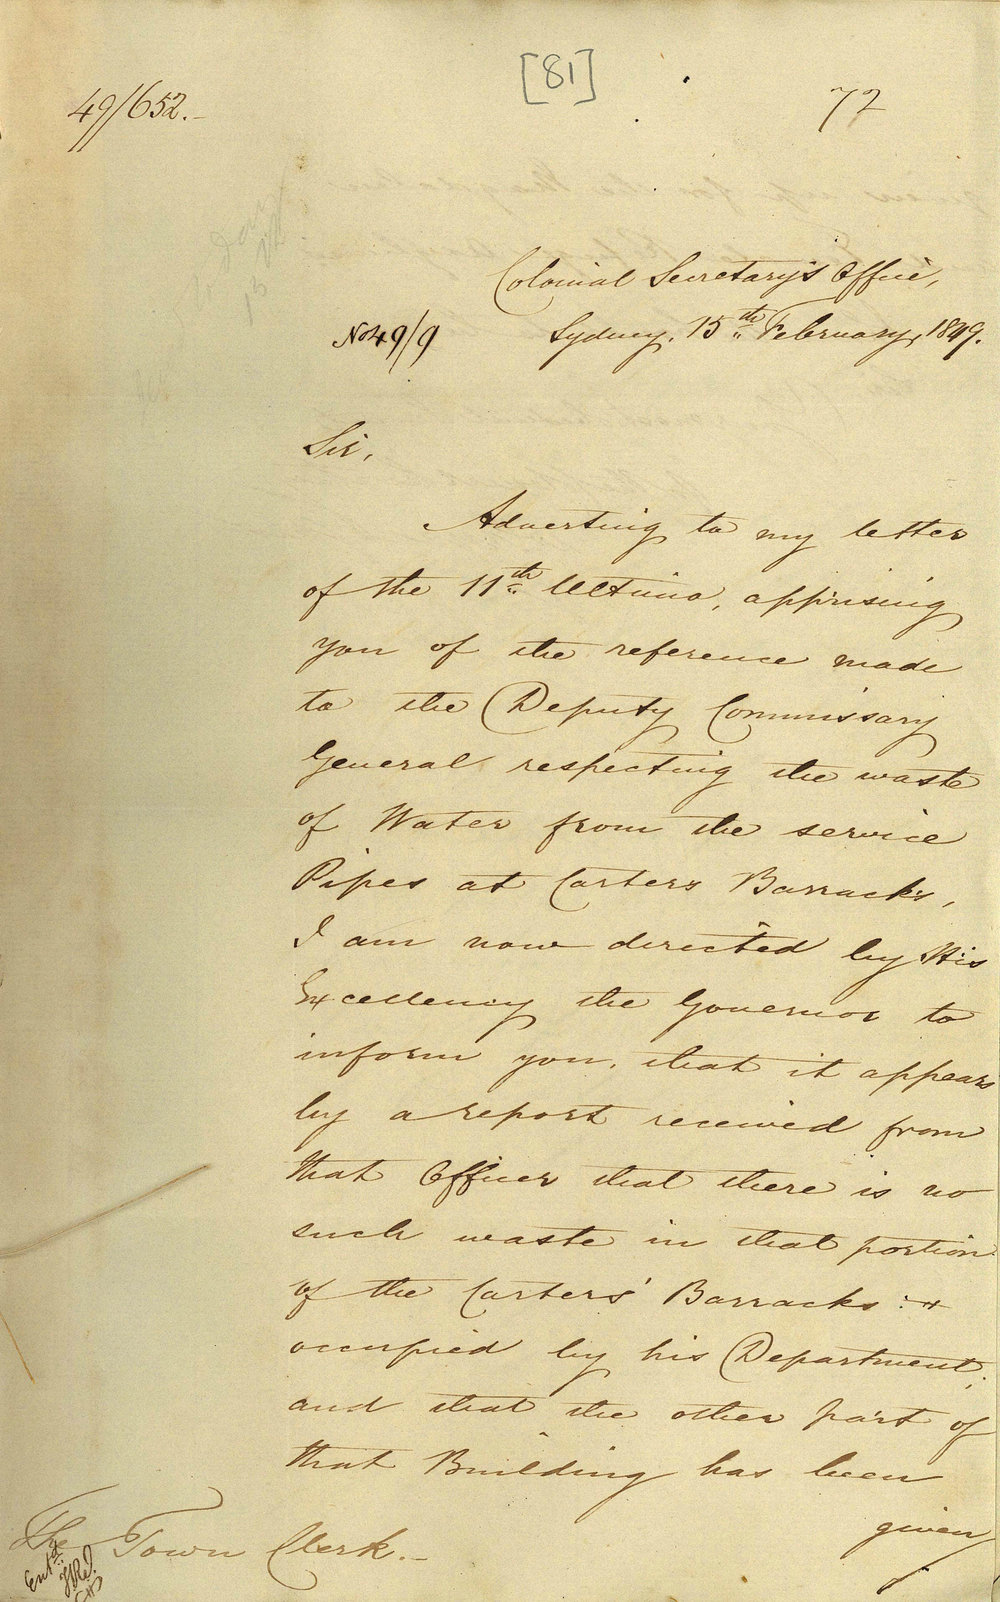 [81]
49/652.-
72
Colonial Secretary's Office,
No 49/9
Sydney. 15th February, 1849.
Sir,
Adverting to my letter
of the 11th Ultimo, apprising
you of the reference made
to the Deputy Commissary
General respecting the waste
of Water from the service
Pipes at Carters Barracks,
I am now directed by His
Excellency the Governor to
inform you, that it appears
by a report received from
that Officer that there is no
such waste in that portion
of the Carters' Barracks
occupied by his Department,
and that the other part of
that Building has been
given
The Town Clerk.-
Entd